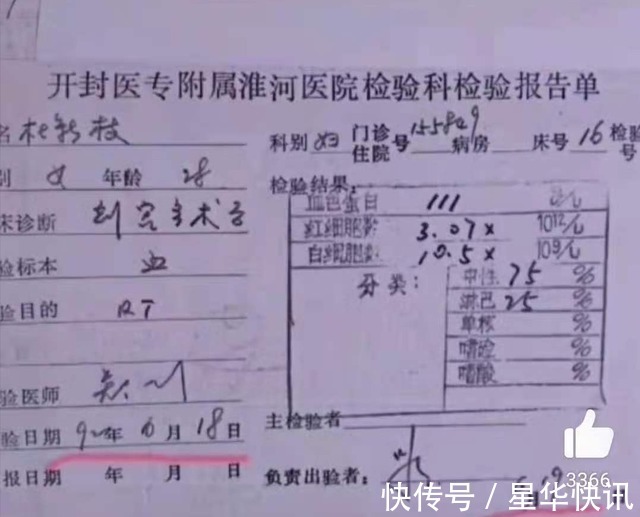 开封医专附属淮河医院检验科检验报告单
名 杜新枝 科别 妇 门诊住院号 155849 病房 床号 16 检验号
别 女 年龄 28 检验结果:
血色蛋白 111 g/L
床诊断 剖宫手术后 红细胞数 3.07× 1012/L
白细胞数 10.5× 109/L
验标本 血 分类: 中性 75 %
淋巴 25 %
验目的 RT 单核 %
嗜碱 %
嗜酸 %
验医师
验日期 92年 6月 18日 主检验者
报日期 年 月 日 负责出验者:
3366
快传号／星华快讯